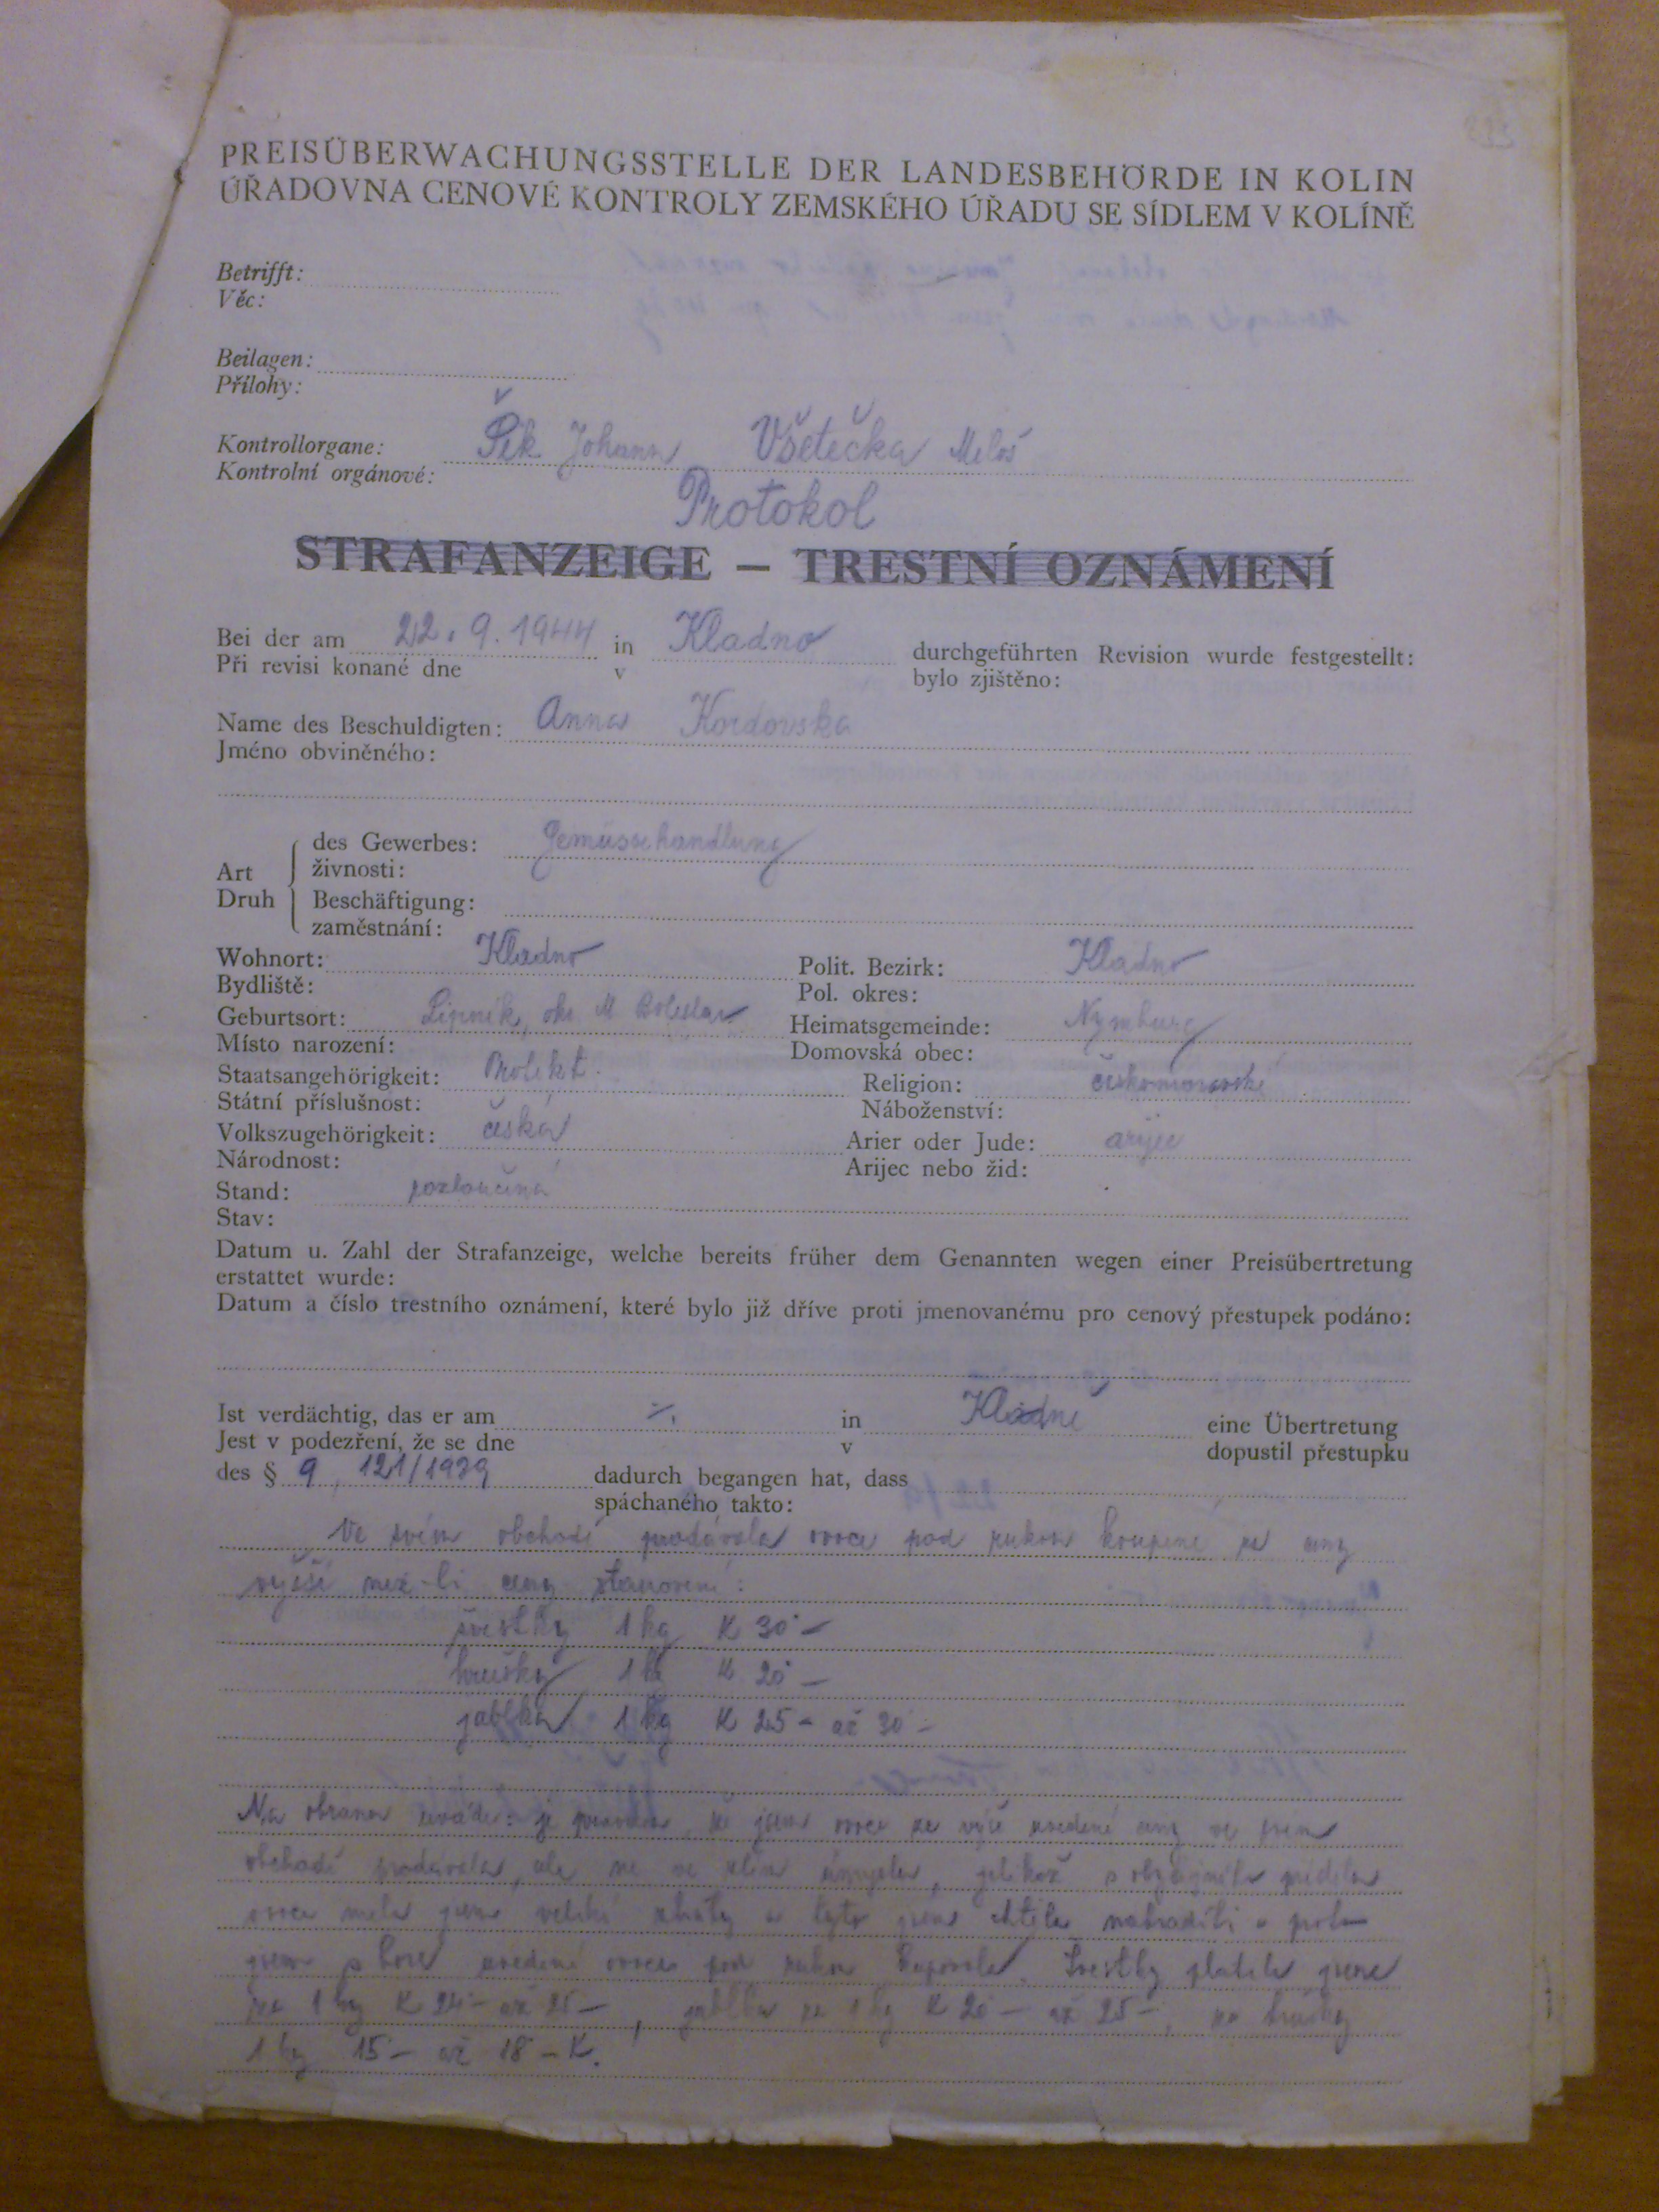 PREISÜBERWACHUNGSSTELLE DER LANDESBEHÖRDE IN KOLIN
ÚŘADOVNA CENOVÉ KONTROLY ZEMSKÉHO ÚŘADU SE SÍDLEM V KOLÍNĚ
Betrifft:
Věc:
Beilagen:
Přílohy:
Kontrollorgane: Johann Všetečka Miloš
Kontrolní orgánové:
Protokol
STRAFANZEIGE — TRESTNÍ OZNÁMENÍ
Bei der am 22. 9. 1944 in Kladno durchgeführten Revision wurde festgestellt:
Při revisi konané dne v bylo zjištěno:
Name des Beschuldigten: Anna Kordovska
Jméno obviněného:
des Gewerbes: Gemüsehandlung
Art živnosti:
Druh Beschäftigung:
zaměstnání:
Wohnort: Kladno Polit. Bezirk: Kladno
Bydliště: Pol. okres:
Geburtsort: Lipník, okr. M. Boleslav Heimatsgemeinde: Nymburg
Místo narození: Domovská obec:
Staatsangehörigkeit: Protekt. Religion: českomoravské
Státní příslušnost: Náboženství:
Volkszugehörigkeit: česká Arier oder Jude: arijec
Národnost: Arijec nebo žid:
Stand: rozloučená
Stav:
Datum u. Zahl der Strafanzeige, welche bereits früher dem Genannten wegen einer Preisübertretung
erstattet wurde:
Datum a číslo trestního oznámení, které bylo již dříve proti jmenovanému pro cenový přestupek podáno:
Ist verdächtig, das er am -/. in Kladně eine Übertretung
Jest v podezření, že se dne v dopustil přestupku
des § 9, 121/1939 dadurch begangen hat, dass
spáchaného takto:
Ve svém obchodě prodávala ovoce pod rukou koupené za ceny
vyšší než-li ceny stanovené:
švestky 1 kg K 30·–
hrušky 1 kg K 20·–
jablka 1 kg K 25– až 30–
Na obranu uvádí: je pravdou, že jsem ovoce za výše uvedené ceny ve svém
obchodě prodávala, ale ne ve zlém úmyslu, jelikož s obyčejného přídělu
ovoce měla jsem veliké ztráty a tyto jsem chtěla nahraditi a proto
jsem shora uvedené ovoce pod rukou kupovala. Švestky platila jsem
za 1 kg K 24– až 25–, jablka za 1 kg K 20– až 25–, za hrušky
1 kg 15– až 18–K.